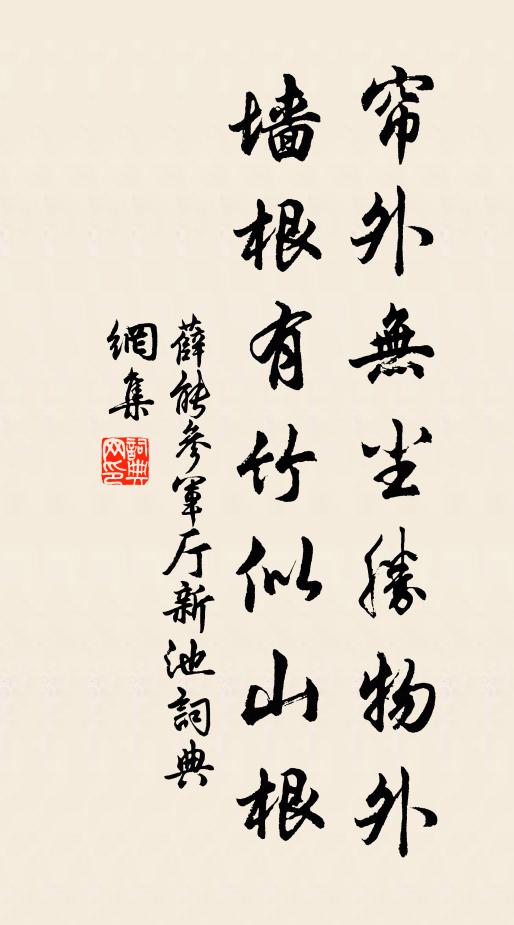 帘外無尘勝物外
墙根有竹似山根
薛能參軍厅新池詞典
網集
詞典網印